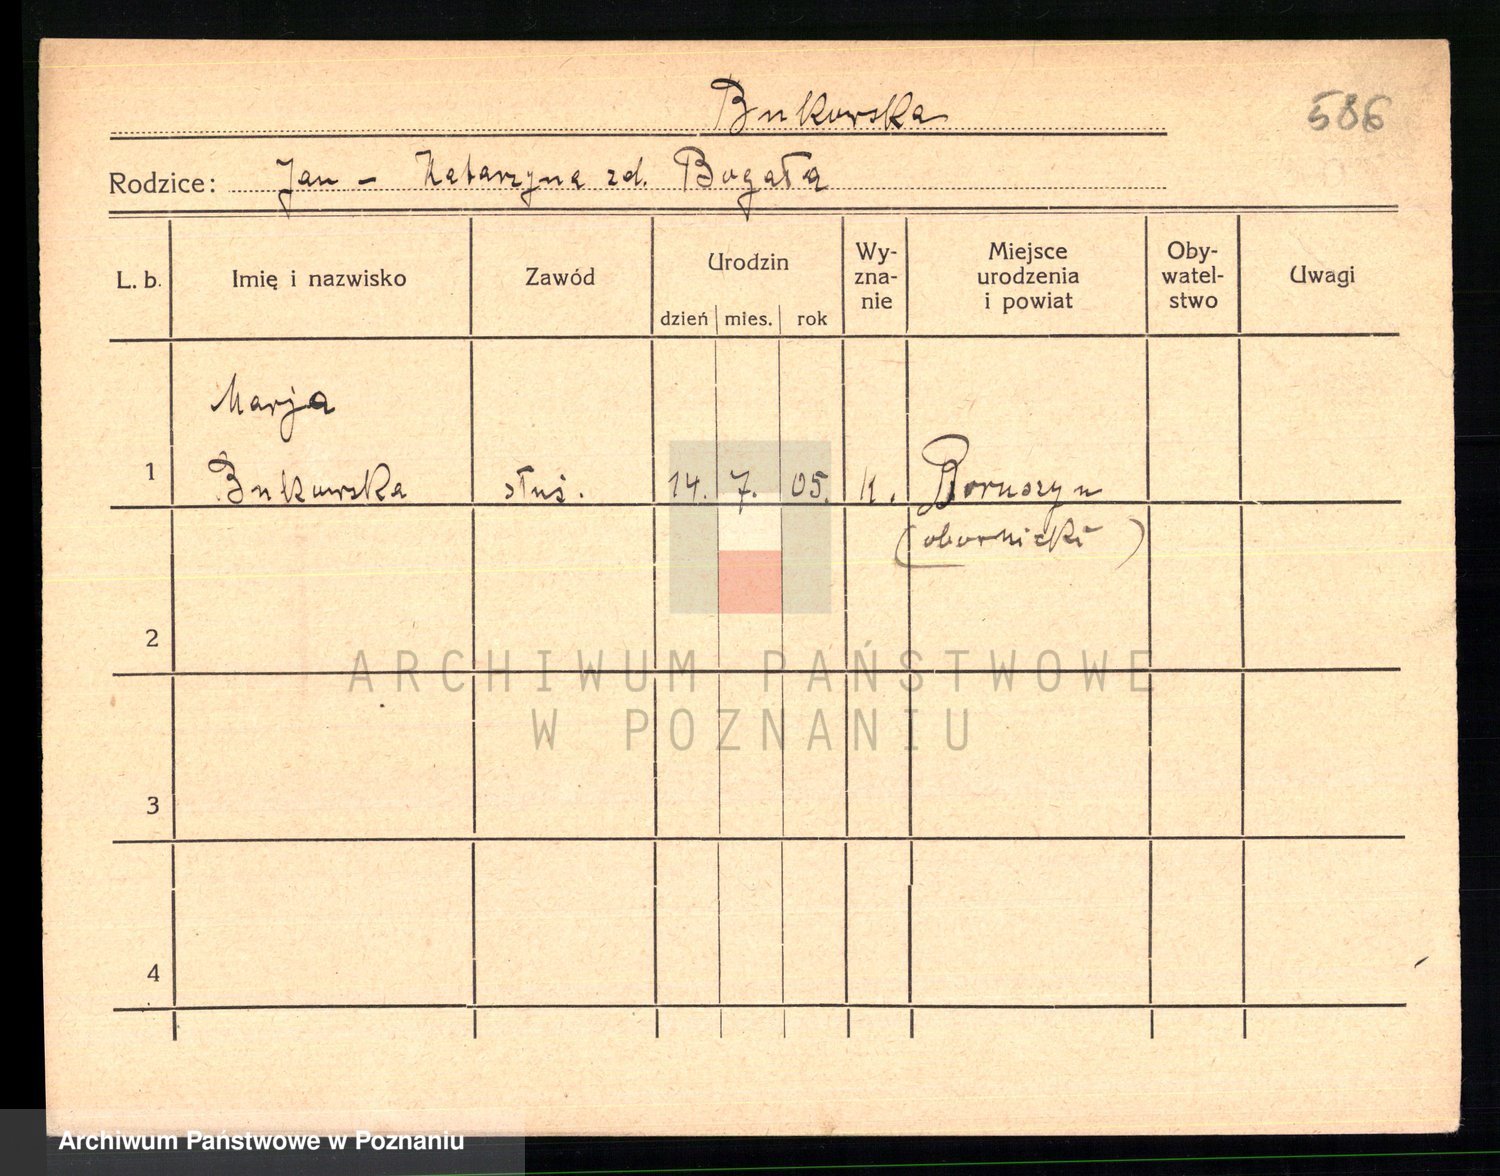 Bukowska
586
Rodzice: Jan – Katarzyna zd. Bogała
L. b. Imię i nazwisko Zawód Urodzin Wy-zna-nie Miejsce urodzenia i powiat Oby-watel-stwo Uwagi
dzień mies. rok
Marja
1 Bukowska służ. 14. 7. 05. k. Boruszyn
(obornicki)
2
ARCHIWUM PAŃSTWOWE
W POZNANIU
3
4
Archiwum Państwowe w Poznaniu